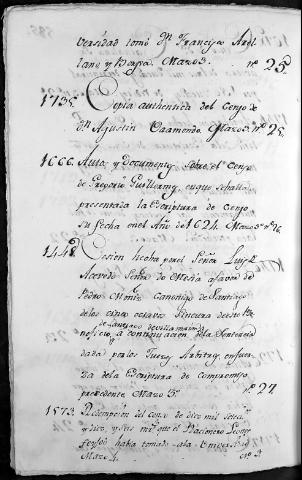 versidad tomó Dn. Francisco Arellano y Baysa. Mazo 3. nº 25.
1735. Copia authentica del Censo de
Dn. Agustin Oxamendi. Mazo 3. nº 25.
1666. Auto, y Documentos sobre el Censo
de Gregorio Guillermy, en que se halla
presentada la Escriptura de Censo
su fecha en el Año de 1624. Mazo 3. nº 26.
144 Cesion hecha por el Señor Luis
Acevedo Señor de Meña a favor de
Pedro Muñiz Canonigo de Santiago
delos cinco octavos sincura deste Be
de Santiago de villamarin
neficio, a continuacion de la Sentencia
dada por los Juezes Arbitros, en fuer
za de la Escriptura de Compromiso
precedente Mazo 3º. nº 27.
1573. Redempcion del censo de diez mil setecientos
y diez, y seis mrs. que el Racionero
havia tomado ala Universidad
Mazo 4. nº 3